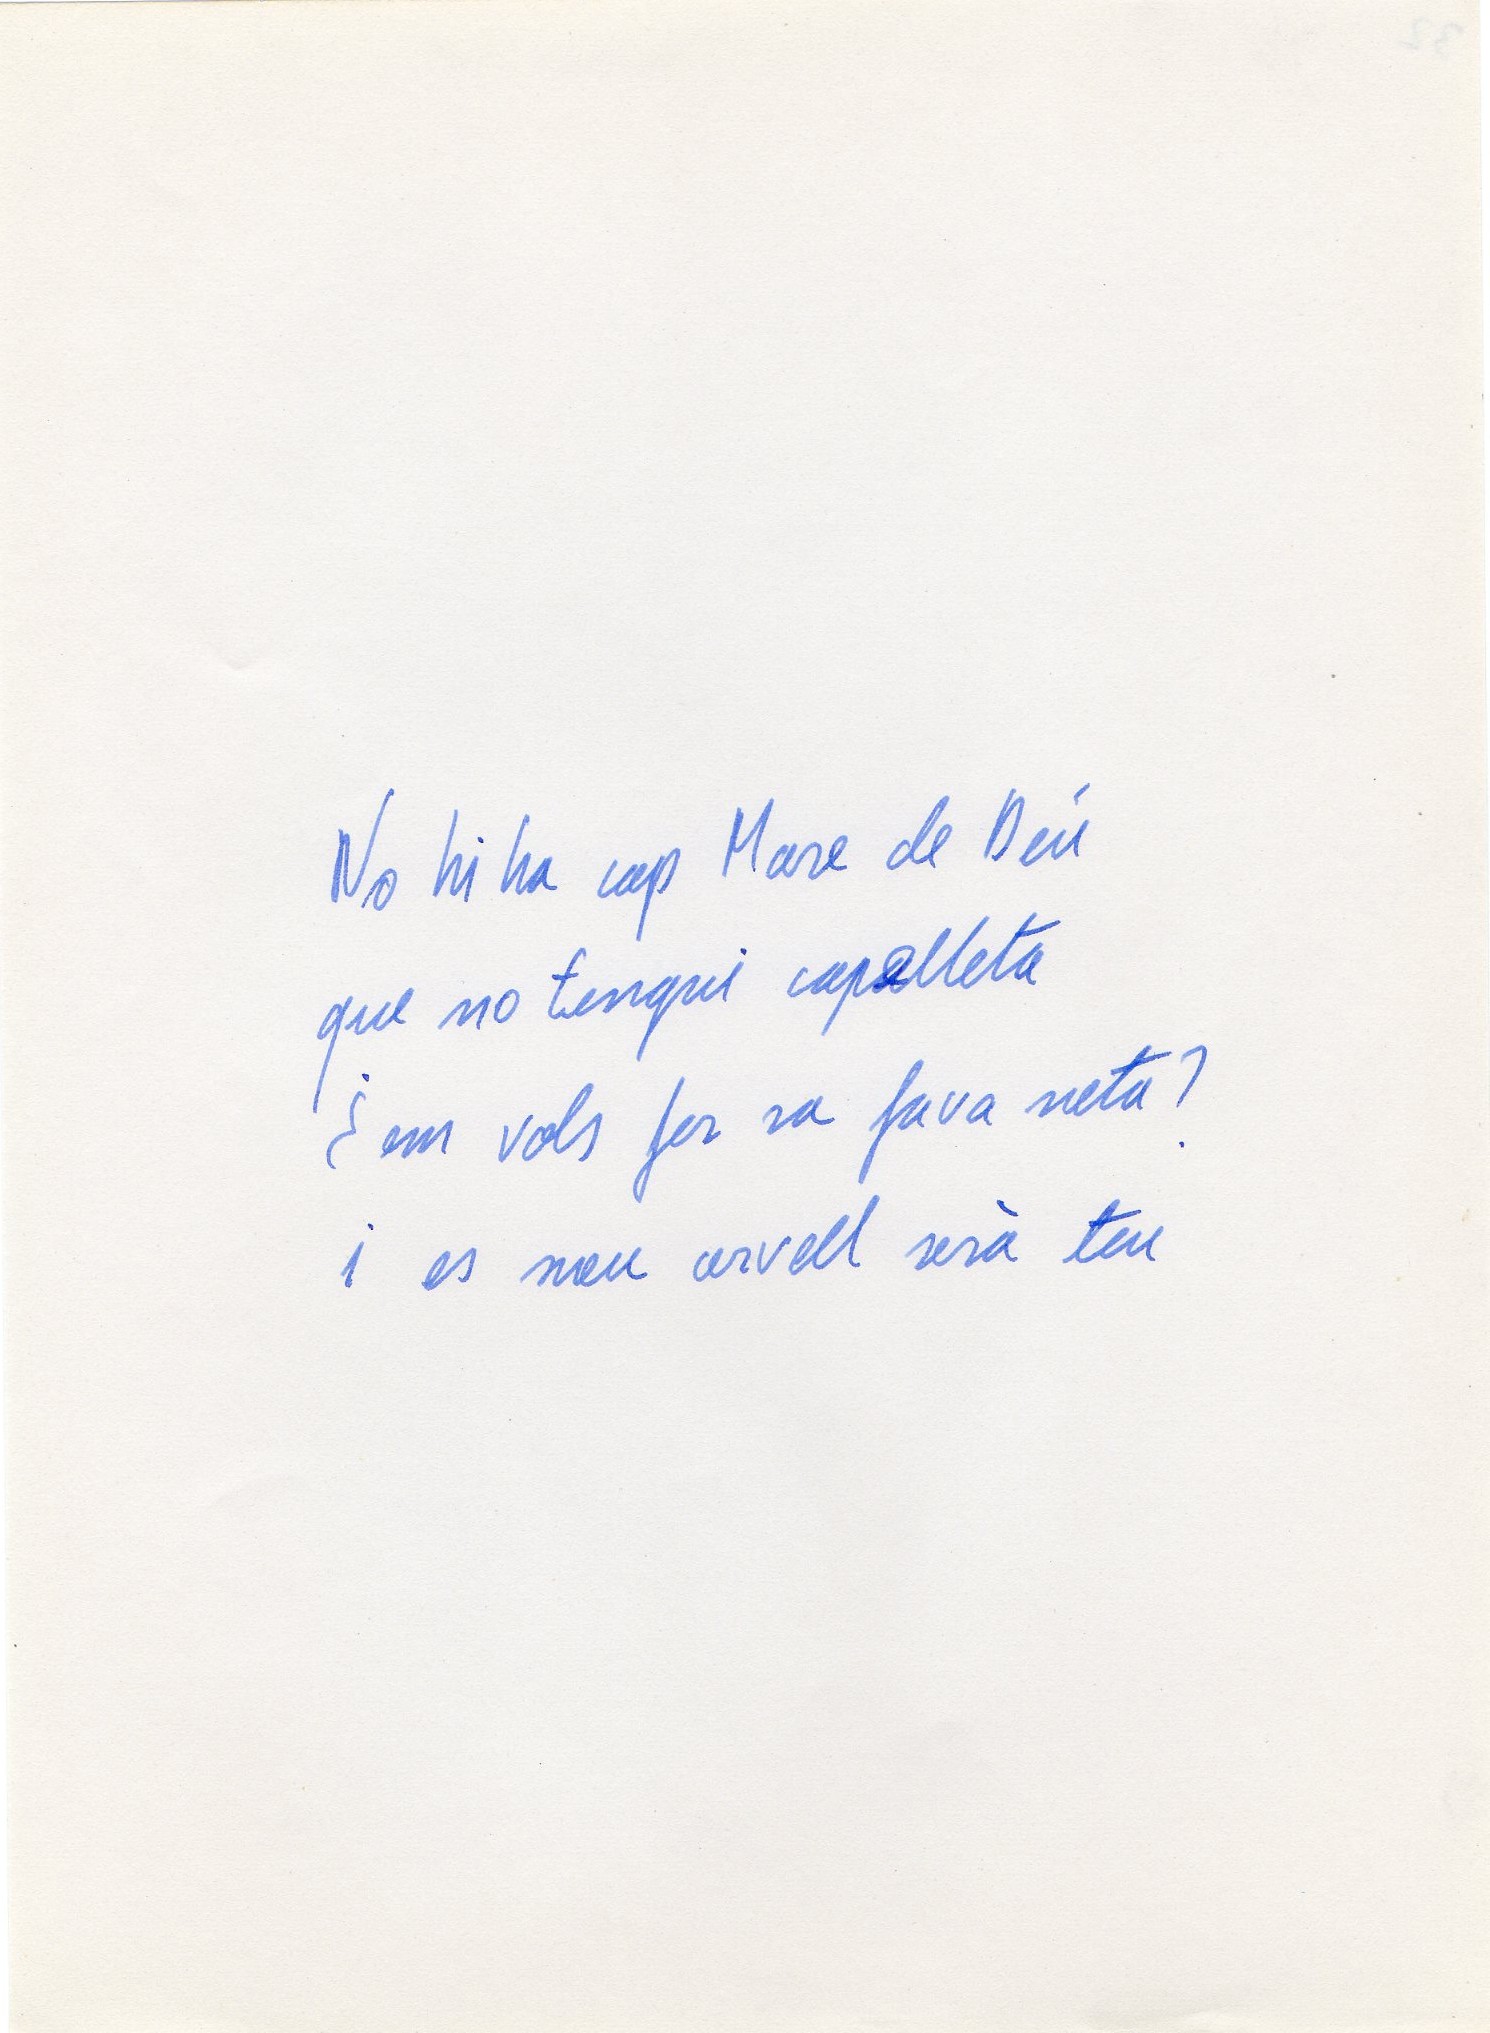 No hi ha cap Mare de Déu
que no tengui capelleta
¿em vols fer sa fava neta?
i es meu cervell serà teu